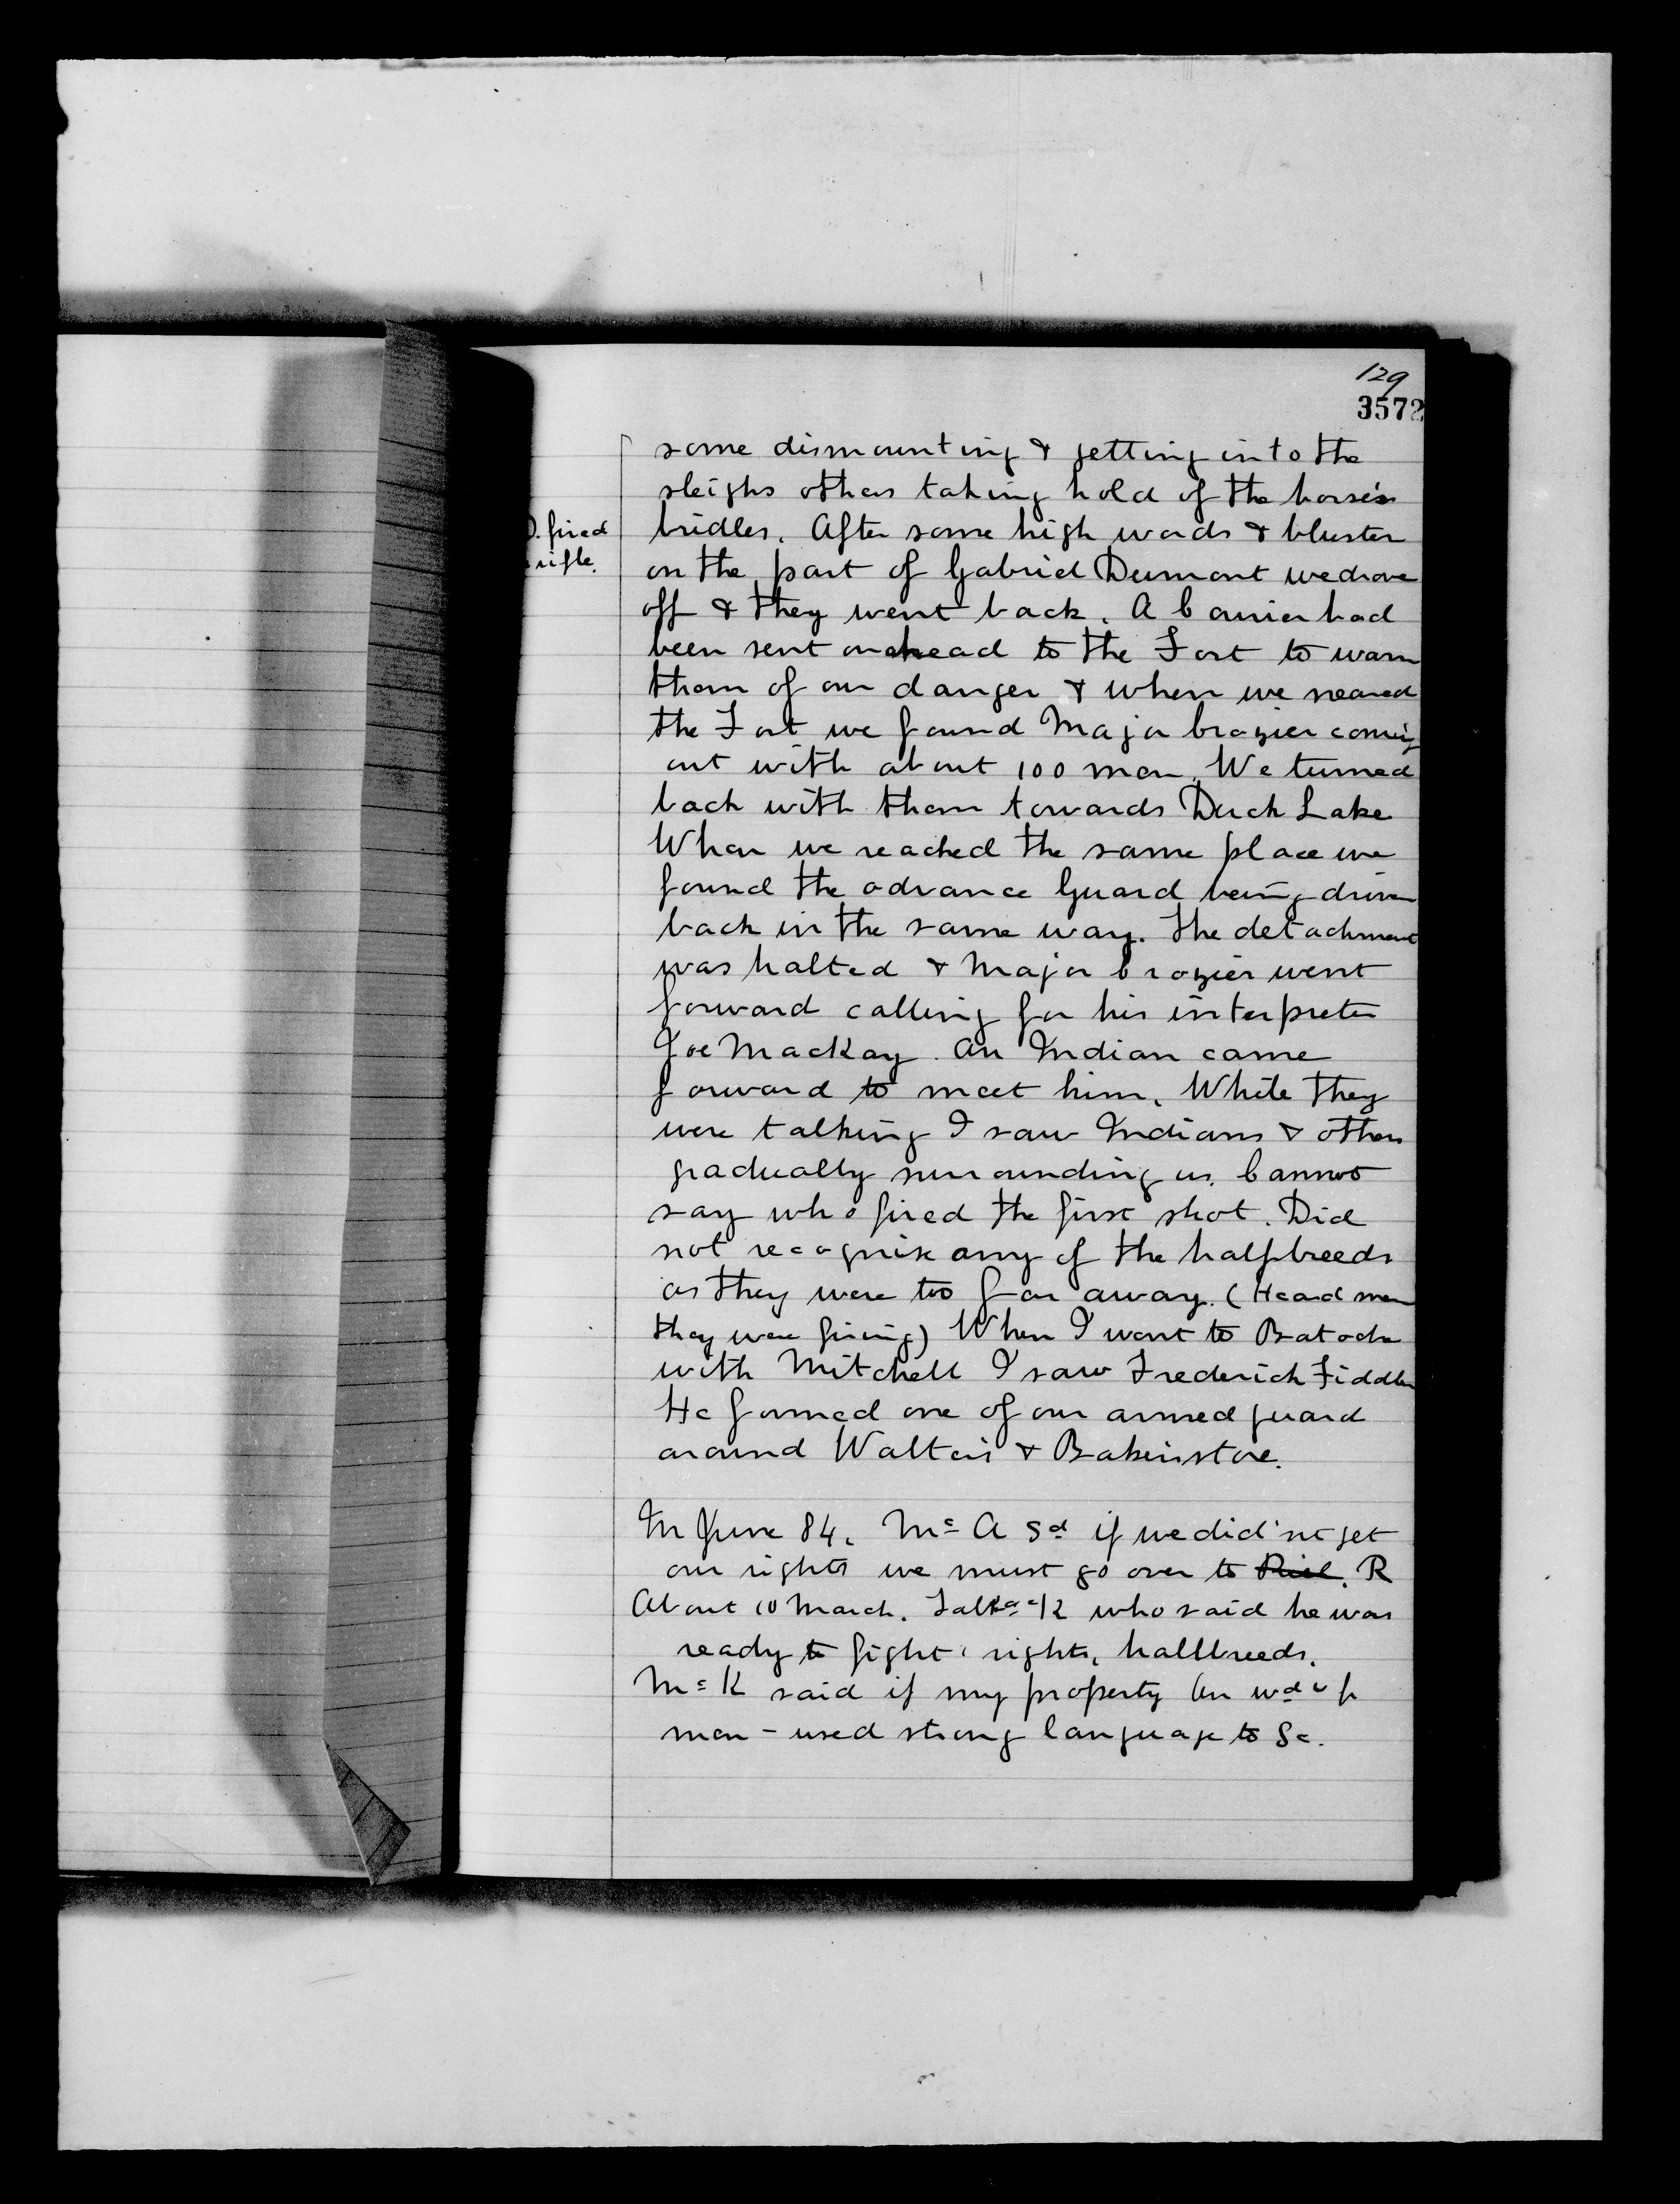 129
3572
some dismounting & getting into the
sleighs others taking hold of the horse's
D. fired
rifle.
bridles. After some high words & bluster
on the part of Gabriel Dumont we drove
off & they went back. A Courier had
been sent on ahead to the Fort to warn
them of our danger & when we neared
the Fort we found Major Crozier coming
out with about 100 men. We turned
back with them towards Duck Lake
When we reached the same place we
found the advance Guard being driven
back in the same way. The detachment
was halted & Major Crozier went
forward calling for his interpreter
Joe MacKay. An Indian came
forward to meet him. While they
were talking I saw Indians & others
gradually surrounding us. Cannot
say who fired the first shot. Did
not recognize any of the halfbreeds
as they were too far away. (Heard men
they were firing) When I went to Batoche
with Mitchell I saw Frederick Fiddler
He formed one of our armed guard
around Walters & Bakers store.
In June 84. Mc A Sd if we did'nt get
our rights we must go over to Riel. R
About 10 March. K who said he was
ready to fight rights, halfbreeds.
Mc K said if my property
men - used strong language to Sc.